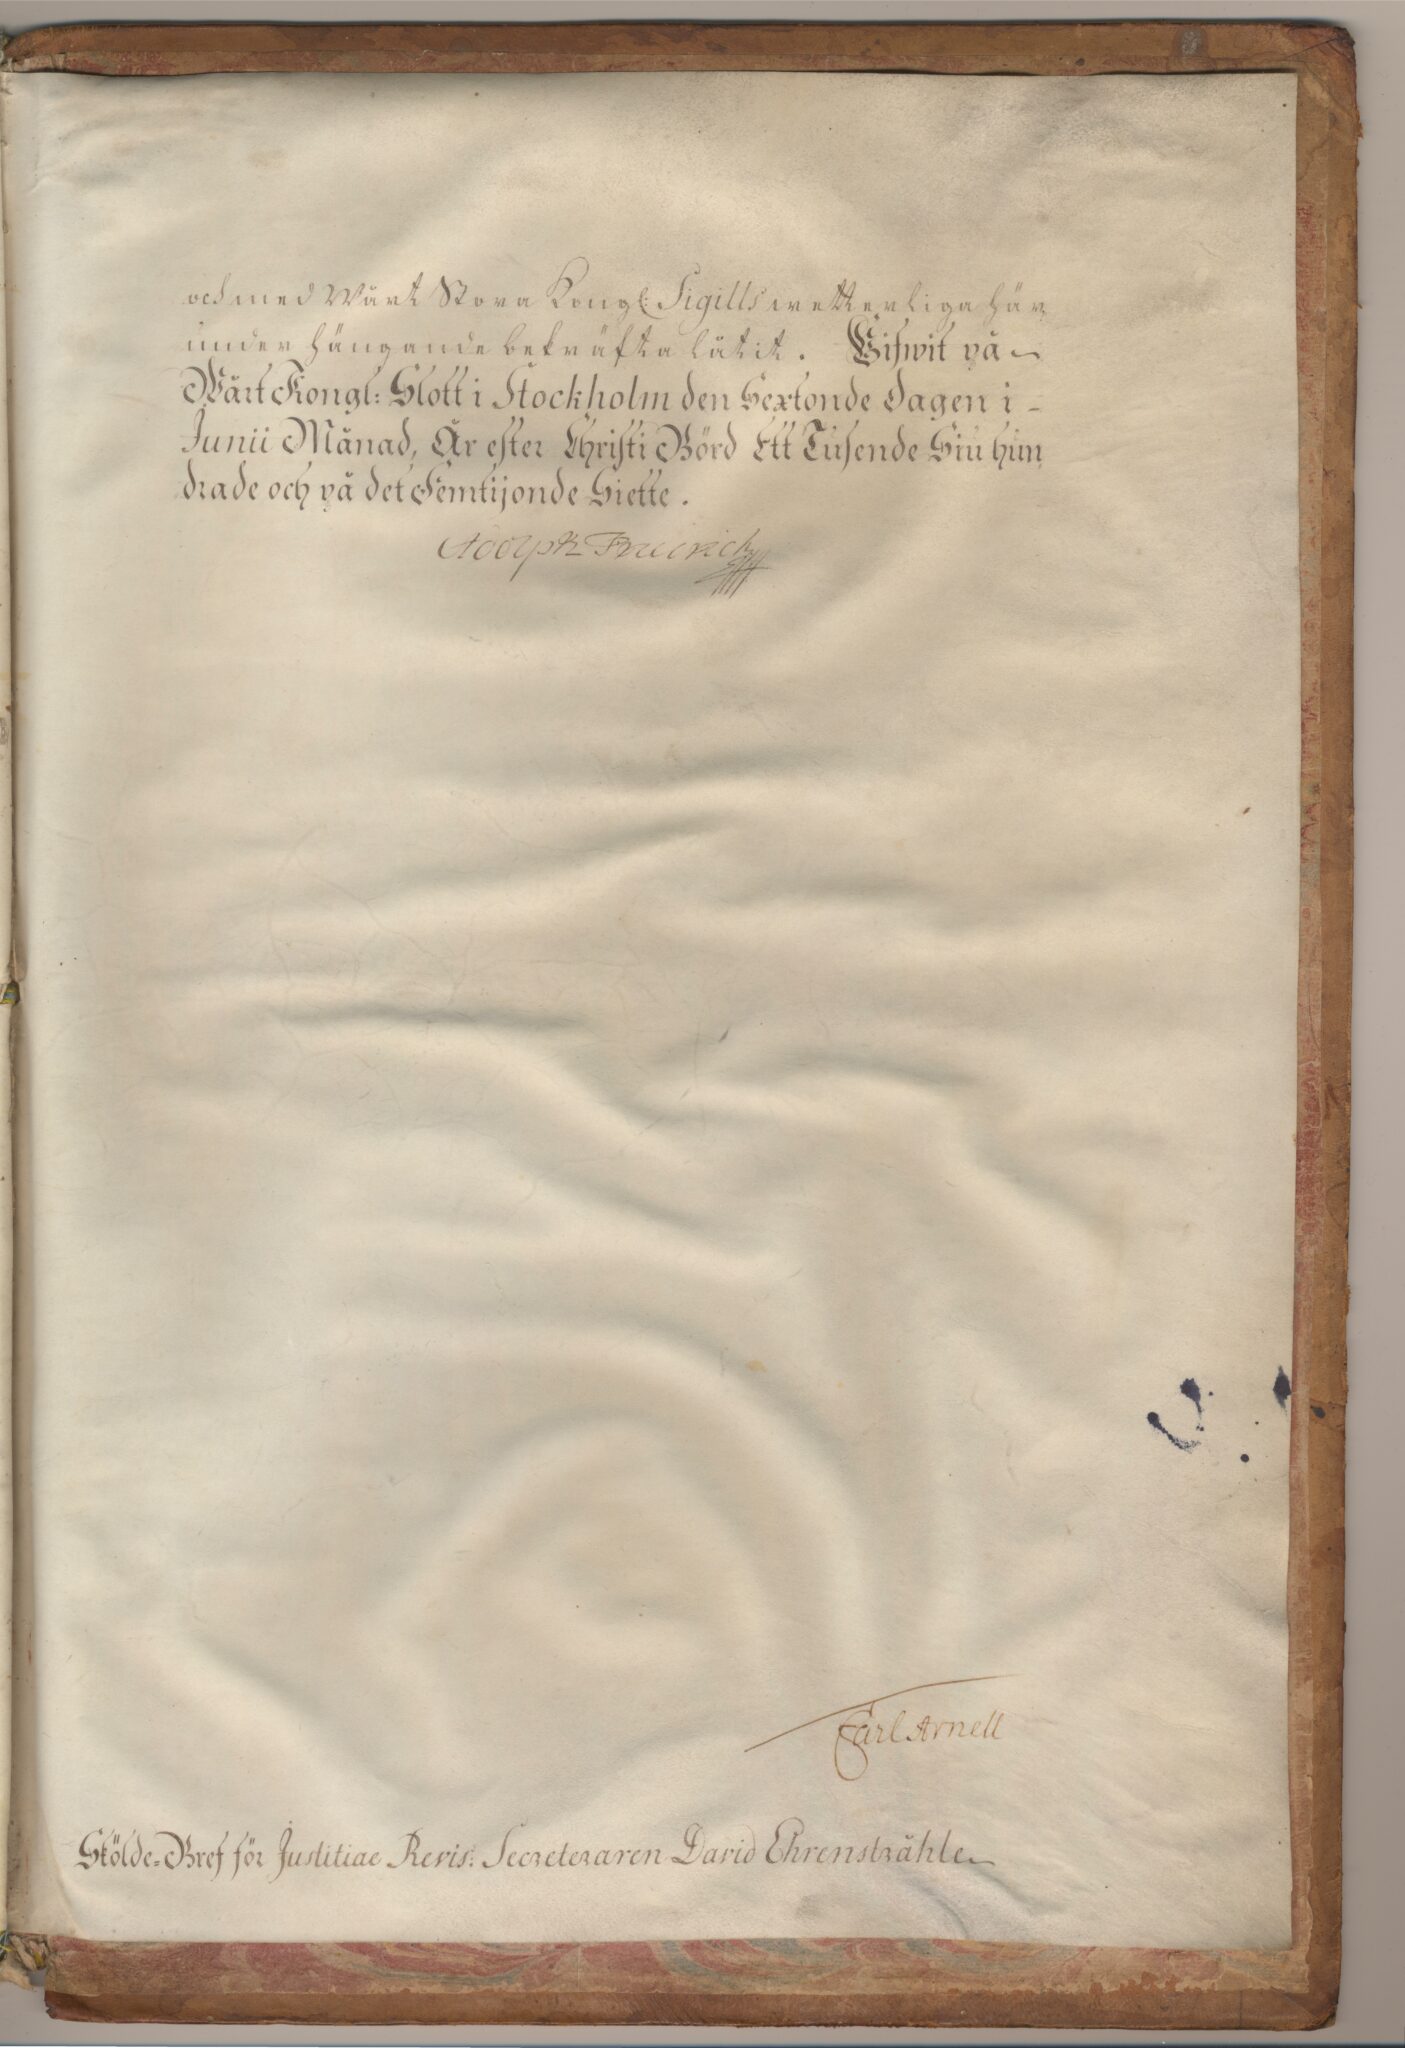 och med Wårt Stora Kongl: Sigills wetterliga här
under hängande bekräfta låtit. Gifwit på
Wårt Kongl: Slott i Stockholm den Sextonde Dagen i
Junii Månad, År efter Christi Börd Ett Tusende Siu hun
drade och på det Femtijonde Siette.
Adolph Friedrich
Carl Arnell
Skölde-Bref för Justitiae Revis: Secreteraren David Ehrenstråhle